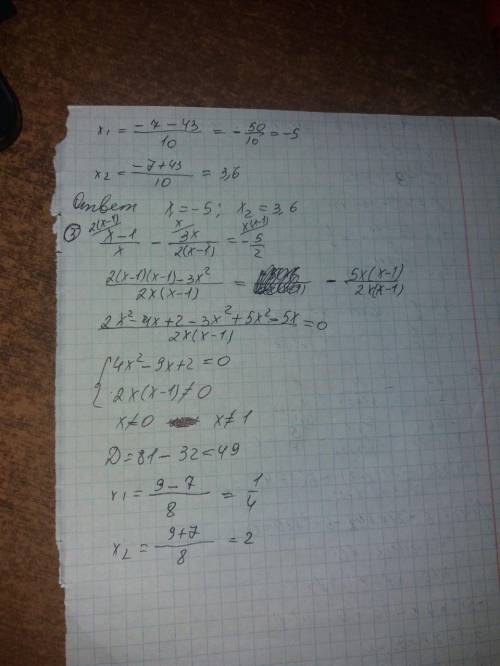 x₁ = (-7-43)/10 = -50/10 = -5
x₂ = (-7+43)/10 = 3,6
Ответ x₁=-5; x₂=3,6
2(x-1) x x(x-1)
③ (x-1)/x - 3x/(2(x-1)) = -5/2
(2(x-1)(x-1)-3x²)/(2x(x-1)) = - 5x(x-1)/(2x(x-1))
(2x²-4x+2-3x²+5x²-5x)/(2x(x-1)) = 0
{ 4x²-9x+2=0
2x(x-1)≠0
x≠0 x≠1
D=81-32=49
x₁ = (9-7)/8 = 1/4
x₂ = (9+7)/8 = 2